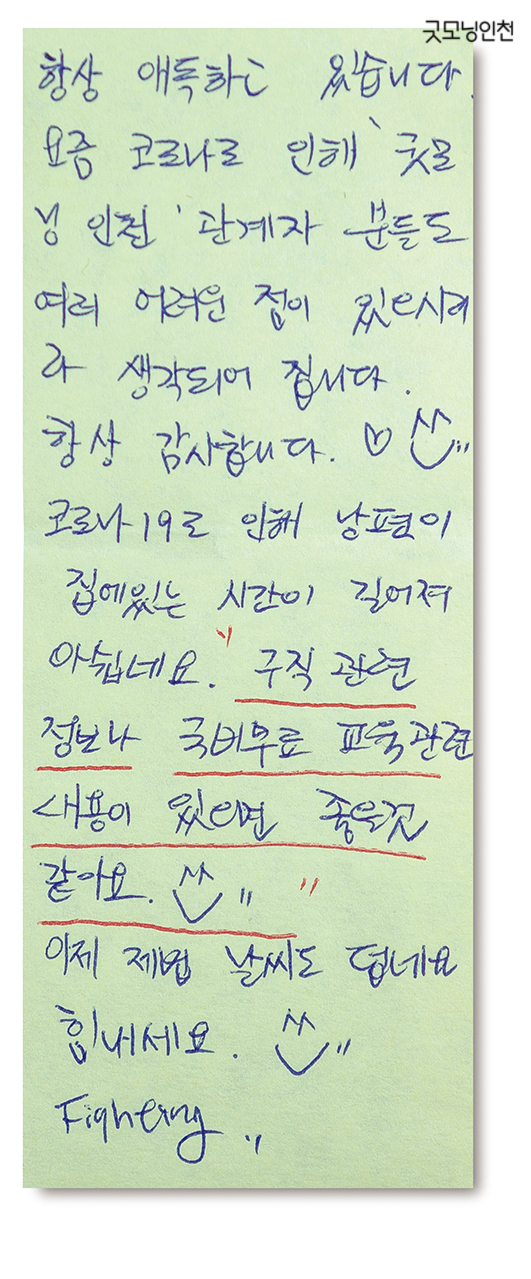 굿모닝인천
항상 애독하고 있습니다.
요즘 코로나로 인해 '굿모
닝 인천' 관계자 분들도
여러 어려운 점이 있으시리
라 생각되어 집니다.
항상 감사합니다. ♡
코로나19로 인해 남편이
집에있는 시간이 길어져
아쉽네요. 구직 관련
정보나 국비무료 교육관련
내용이 있으면 좋을것
같아요.
이제 제법 날씨도 덥네요
힘내세요.
Fighting